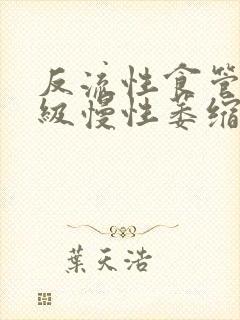 反流性食管
级慢性萎缩
葉天浩